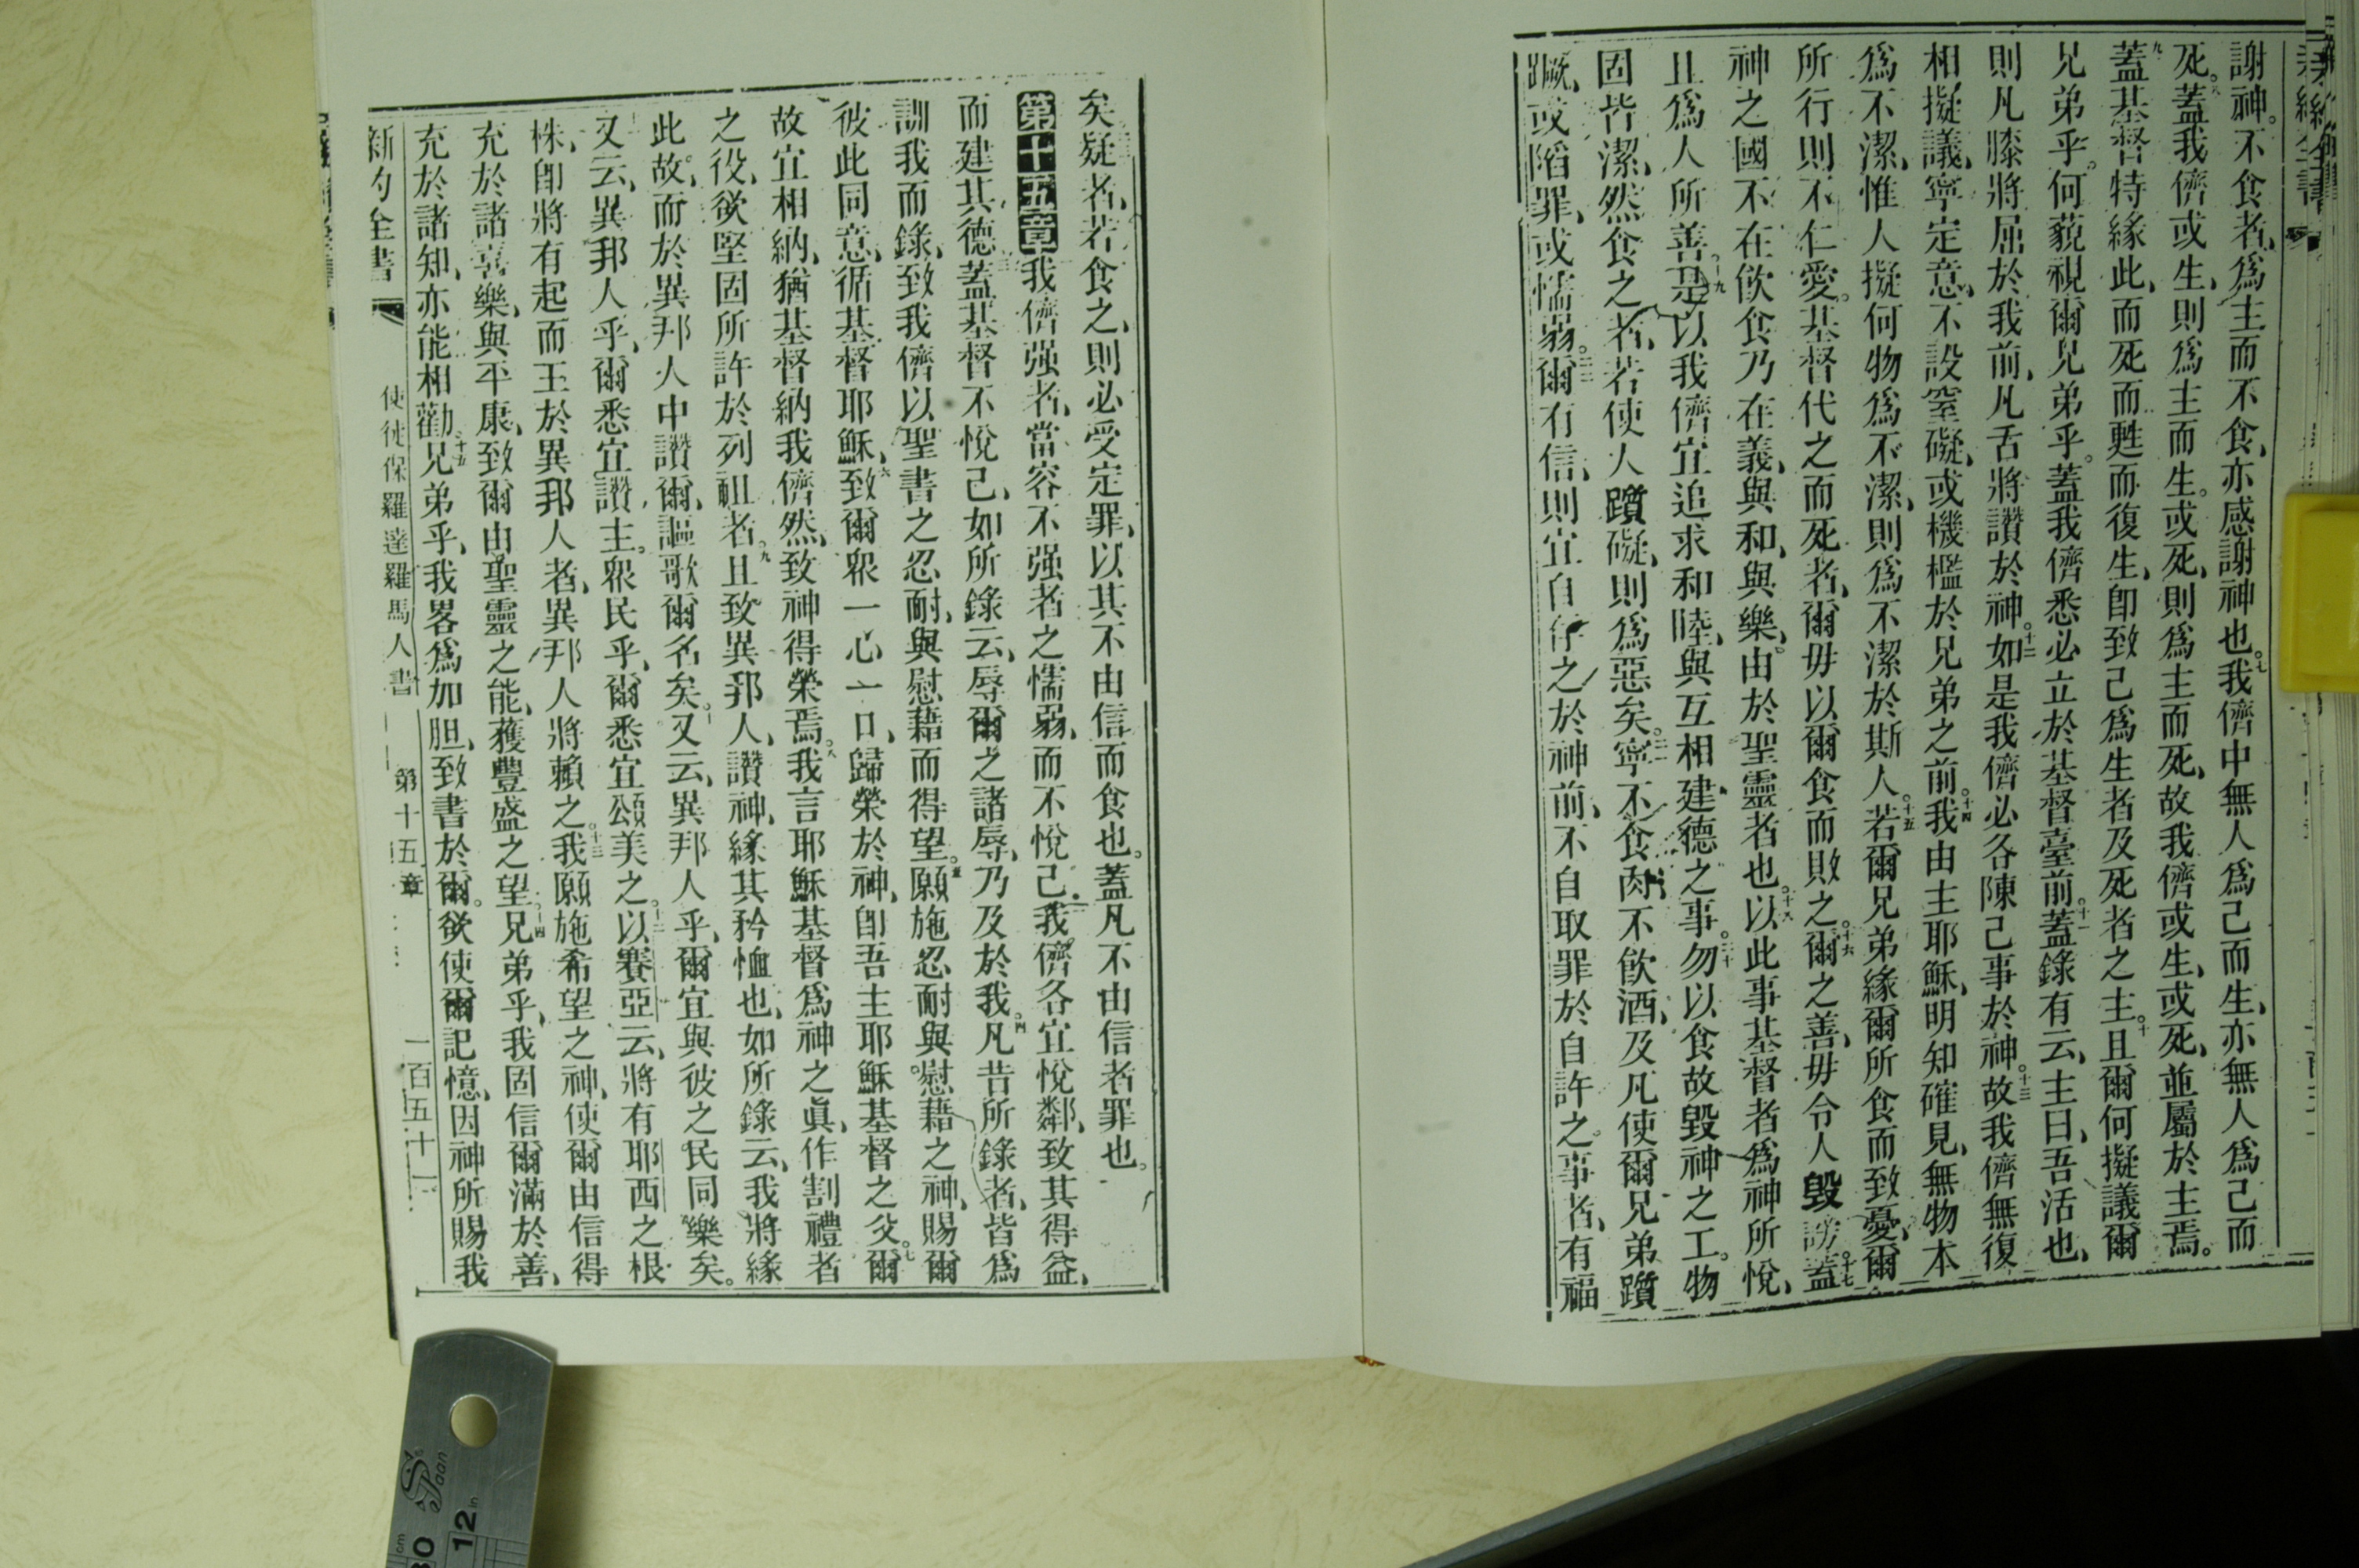 謝神。不食者、爲主而不食、亦感謝神也。七我儕中無人爲己而生、亦無人爲己而
死。八蓋我儕或生、則爲主而生。或死、則爲主而死、故我儕或生、或死、並屬於主焉。
九蓋基督特緣此、而死而甦而復生、卽致己爲生者及死者之主。十且爾何擬議爾
兄弟乎。何藐視爾兄弟乎。蓋我儕悉必立於基督臺前。十一蓋錄有云、主曰、吾活也、
則凡膝將屈於我前、凡舌將讚於神。十二如是我儕必各陳己事於神。十三故我儕無復
相擬議、寧定意、不設窒礙、或機檻於兄弟之前。十四我由主耶穌、明知確見、無物本
爲不潔、惟人擬何物爲不潔、則爲不潔於斯人。十五若爾兄弟緣爾所食而致憂、爾
所行則不仁愛。基督代之而死者、爾毋以爾食而敗之。十六爾之善、毋令人毀謗。十七蓋
神之國不在飲食乃在義、與和、與樂、由於聖靈者也。十八以此事基督者、爲神所悅、
且爲人所善。十九是以我儕宜追求和陸、與互相建德之事。二十勿以食故毀神之工。物
固皆潔、然食之者、若使人躓礙、則爲惡矣。二一寧不食肉、不飲酒、及凡使爾兄弟躓
蹶、或陷罪、或懦弱。二二爾有信、則宜自存之於神前、不自取罪於自許之事者、有福
矣。疑者、若食之、則必受定罪、以其不由信而食也。蓋凡不由信者罪也。
第十五章我儕强者、當容不强者之懦弱、而不悅己。二我儕各宜悅鄰、致其得益、
而建其德。三蓋基督不悅己、如所錄云、辱爾之諸辱、乃及於我。四凡昔所錄者、皆爲
訓我而錄、致我儕以聖書之忍耐、與慰藉而得望。五願施忍耐與慰藉之神、賜爾
彼此同意、循基督耶穌、六致爾衆一心一口、歸榮於神、卽吾主耶穌基督之父。七爾
故宜相納、猶基督納我儕然、致神得榮焉。八我言耶穌基督爲神之眞、作割禮者
之役、欲堅固所許於列祖者。九且致異邦人、讚神、緣其矜恤也、如所錄云、我將緣
此故、而於異邦人中讚爾、謳歌爾名矣。十又云、異邦人乎、爾宜與彼之民同樂矣。
又云、異邦人乎、爾悉宜讚主。衆民乎、爾悉宜頌美之。十二以賽亞云、將有耶西之根
株、卽將有起而王於異邦人者、異邦人將賴之。十三我願施希望之神、使爾由信得
充於諸喜樂、與平康、致爾由聖靈之能、獲豐盛之望。十四兄弟乎、我固信爾滿於善、
充於諸知、亦能相勸。十五兄弟乎、我畧爲加胆、致書於爾。欲使爾記憶、因神所賜我
新約全書 使徒保羅達羅馬人書 第十五章 一百五十一
Saan
cm 30
12 in